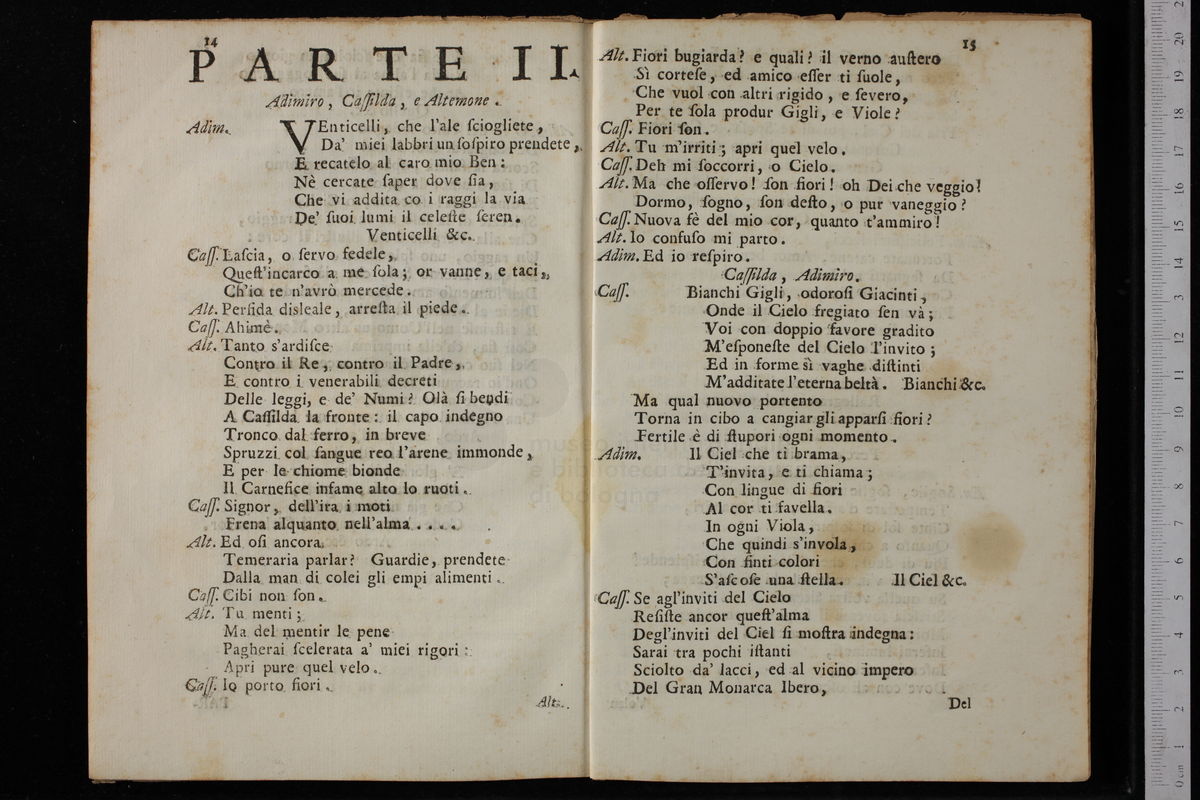 14
PARTE II.
Adimiro, Caſſilda, e Altemone.
Adim. VEnticelli, che l'ale ſciogliete,
Da' miei labbri un ſoſpiro prendete,
E recatelo al caro mio Ben:
Nè cercate ſaper dove ſia,
Che vi addita co i raggi la via
De' ſuoi lumi il celeſte ſeren.
Venticelli &c.
Caſſ. Laſcia, o ſervo fedele,
Queſt'incarco a me ſola; or vanne, e taci,
Ch'io te n'avrò mercede.
Alt. Perfida disleale, arreſta il piede.
Caſſ. Ahimè.
Alt. Tanto s'ardiſce
Contro il Re, contro il Padre,
E contro i venerabili decreti
Delle leggi, e de' Numi? Olà ſi bendi
A Caſſilda la fronte: il capo indegno
Tronco dal ferro, in breve
Spruzzi col ſangue reo l'arene immonde,
E per le chiome bionde
Il Carnefice infame alto lo ruoti.
Caſſ. Signor, dell'ira i moti
Frena alquanto nell'alma....
Alt. Ed oſi ancora
Temeraria parlar? Guardie, prendete
Dalla man di colei gli empi alimenti.
Caſſ. Cibi non ſon.
Alt. Tu menti;
Ma del mentir le pene
Pagherai ſcelerata a' miei rigori:
Apri pure quel velo.
Caſſ. Io porto fiori.
Alt.
15
Alt. Fiori bugiarda? e quali? il verno auſtero
Sì corteſe, ed amico eſſer ti ſuole,
Che vuol con altri rigido, e ſevero,
Per te ſola produr Gigli, e Viole?
Caſſ. Fiori ſon.
Alt. Tu m'irriti; apri quel velo.
Caſſ. Deh mi ſoccorri, o Cielo.
Alt. Ma che oſſervo! ſon fiori! oh Dei che veggio!
Dormo, ſogno, ſon deſto, o pur vaneggio?
Caſſ. Nuova fè del mio cor, quanto t'ammiro!
Alt. Io confuſo mi parto.
Adim. Ed io reſpiro.
Caſſilda, Adimiro.
Caſſ. Bianchi Gigli, odoroſi Giacinti,
Onde il Cielo fregiato ſen và;
Voi con doppio favore gradito
M'eſponeſte del Cielo l'invito;
Ed in forme sì vaghe diſtinti
M'additate l'eterna beltà. Bianchi &c.
Ma qual nuovo portento
Torna in cibo a cangiar gli apparſi fiori?
Fertile è di ſtupori ogni momento.
Adim. Il Ciel che ti brama,
T'invita, e ti chiama;
Con lingue di fiori
Al cor ti favella.
In ogni Viola,
Che quindi s'invola,
Con finti colori
S'aſcoſe una ſtella. Il Ciel &c.
Caſſ. Se agl'inviti del Cielo
Reſiſte ancor queſt'alma
Degl'inviti del Ciel ſi moſtra indegna:
Sarai tra pochi iſtanti
Sciolto da' lacci, ed al vicino impero
Del Gran Monarca Ibero,
Del